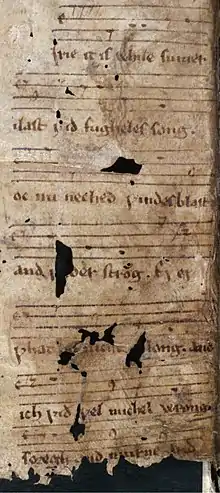 irie it is while sumer
ilast ƿid fugheles song.
oc nu neched ƿindes blast
and ƿ der strog. Ej ej
ƿhat nicht long. and
ich ƿid ƿel michel wrong.
soregh and murne and